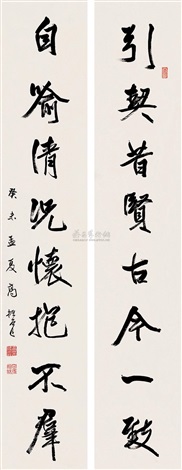 引契昔賢古今一致
自喻清况懷抱不羣
癸未孟夏